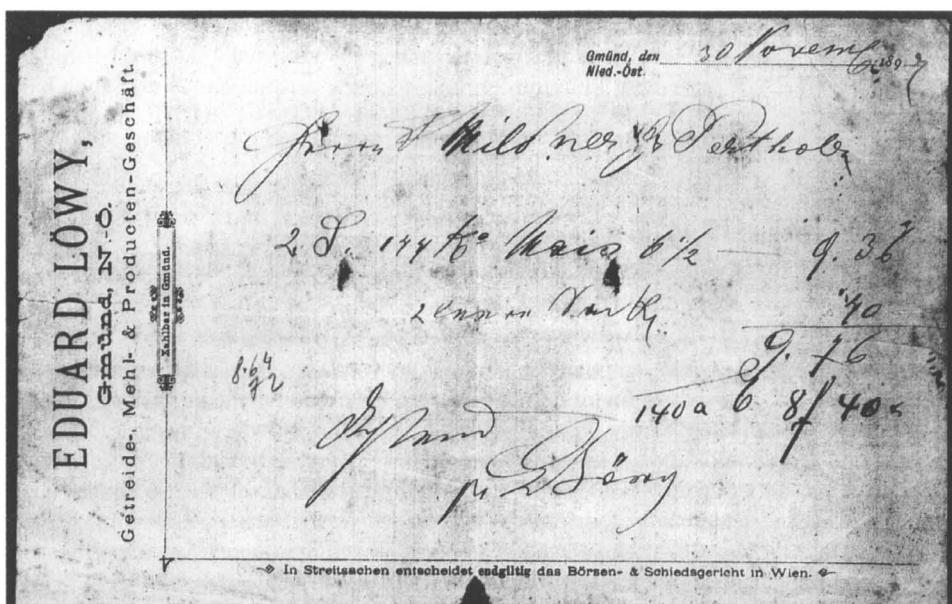 EDUARD LÖWY,
Gmünd, N.-Ö.
Getreide-, Mehl- & Producten-Geschäft.
Zahlbar in Gmünd.
Gmünd, den 30 Novemb 189
Nied.-Öst.
Herrn
2 S. 144 Ko Mais 6 1/2 — 9.36
2 Sack 40
9.76
8.64
72
140 a 6 8 f 40
In Streitsachen entscheidet endgiltig das Börsen- & Schiedsgericht in Wien.